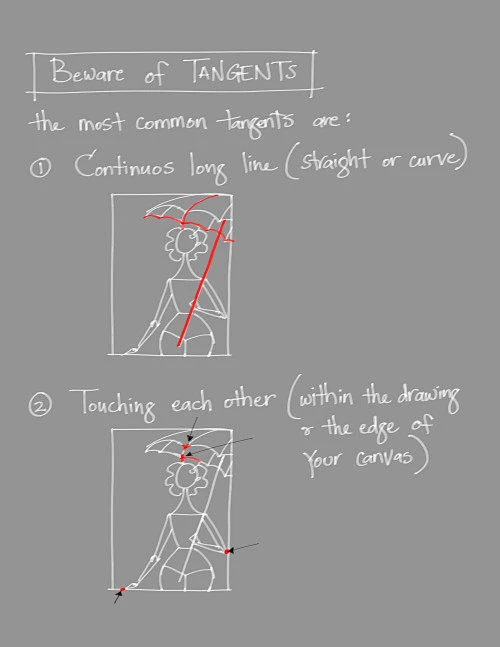 Beware of TANGENTS
the most common tangents are:
① Continuos long line (straight or curve)
② Touching each other (within the drawing
r the edge of
your canvas)